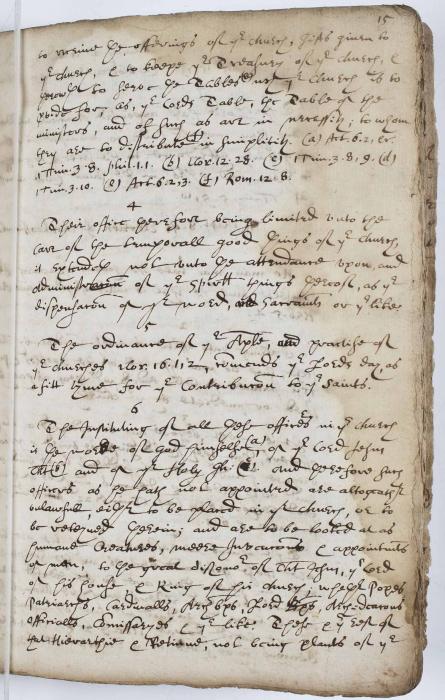 15
to receive the offerings of ye church, gifts given to
ye church, & to keepe ye Treasury of ye church, &
to serve the Tables wch ye Church is to
pvide for, as, ye Lords Table, the Table of the
ministers, and of such as are in necessity; to whom
they are to distribute (f) in simplicity. (a) Act. 6. 2,
1 Tim. 3. 8. Phil. 1. 1. (b) 1 Cor. 12. 28. (c) 1 Tim. 3. 8, 9. (d)
1 Tim. 3. 10. (e) Act. 6. 2, 3. (f) Rom. 12. 8.
4
Their office therefore being limited unto the
care of the temporall good things of ye church,
it extends not unto the attendance upon, and
administration of ye spirituall things thereof, as ye
dispensation of ye word, and Sacraments or ye like
5
The ordinance of ye Aple, and practise of
ye churches 1 Cor. 16. 1, 2, comends ye Lords day, as
a fitt tyme for ye Contribution to ye Saints.
6
The Instituting of all these offices in ye church
is the worke of God himselfe (a), of ye Lord Jesus
Cht (b) and of ye Holy Gh. (c). And therefore such
officers as he hath not appointed are altogether
unlawfull, either to be placed in ye church, or to
be reteyned therein; and are to be looked at as
humane Creatures, meere Inventions & appointmts
of man, to the great dishonor of Cht Jesus, ye Lord
of his house, & King of his church, whether Popes
Patriarchs, Cardinalls, Archbps, Lord Bps, Archdeacons
officialls, Comissaryes & ye like. These & ye rest of
that Hierarchie & Retinue, not being plants of ye